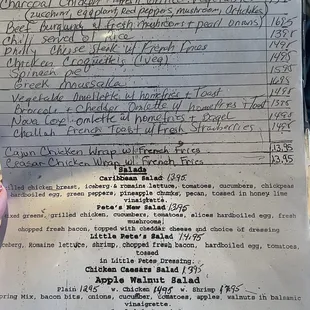 Charcoal Chicken
(zucchini, eggplant, Red peppers, mushroom, Artichokes)
Beef Burgundy w/ fresh mushrooms + pearl onions) 16.95
Chili served w/ rice 13.95
Philly Cheese steak w/ French Fries 14.95
Chicken Croquettes (veg) 14.95
Spinach pie
Greek moussaka
Vegetable Omlette w/ homefries + Toast 14.95
Broccoli + Cheddar Omlette w/ homefries + Toast 13.95
Nova Lox omlette w/ homefries + Bagel
Challah French Toast w/ Fresh Strawberries 14.95
Cajun Chicken Wrap w/ French Fries 13.95
Ceasar Chicken Wrap w/ French Fries 13.95
Salads
Caribbean Salad 13.95
lled chicken breast, iceberg & romaine lettuce, tomatoes, cucumbers, chickpeas
hardboiled egg, green peppers, pineapple chunks, pecan, tossed in honey lime
vinaigrette.
Pete's New Salad 13.95
xed greens, grilled chicken, cucumbers, tomatoes, slices hardboiled egg, fresh
mushrooms,
chopped fresh bacon, topped with cheddar cheese and choice of dressing
Little Pete's Salad 14.95
Iceberg, Romaine lettuce, shrimp, chopped fresh bacon, hardboiled egg, tomatoes,
tossed
in Little Petes Dressing.
Chicken Caesars Salad 13.95
Apple Walnut Salad
Plain 12.95 w. Chicken 14.95 w. Shrimp
pring Mix, bacon bits, onions, cucumber, tomatoes, apples, walnuts in balsamic
vinaigrette.